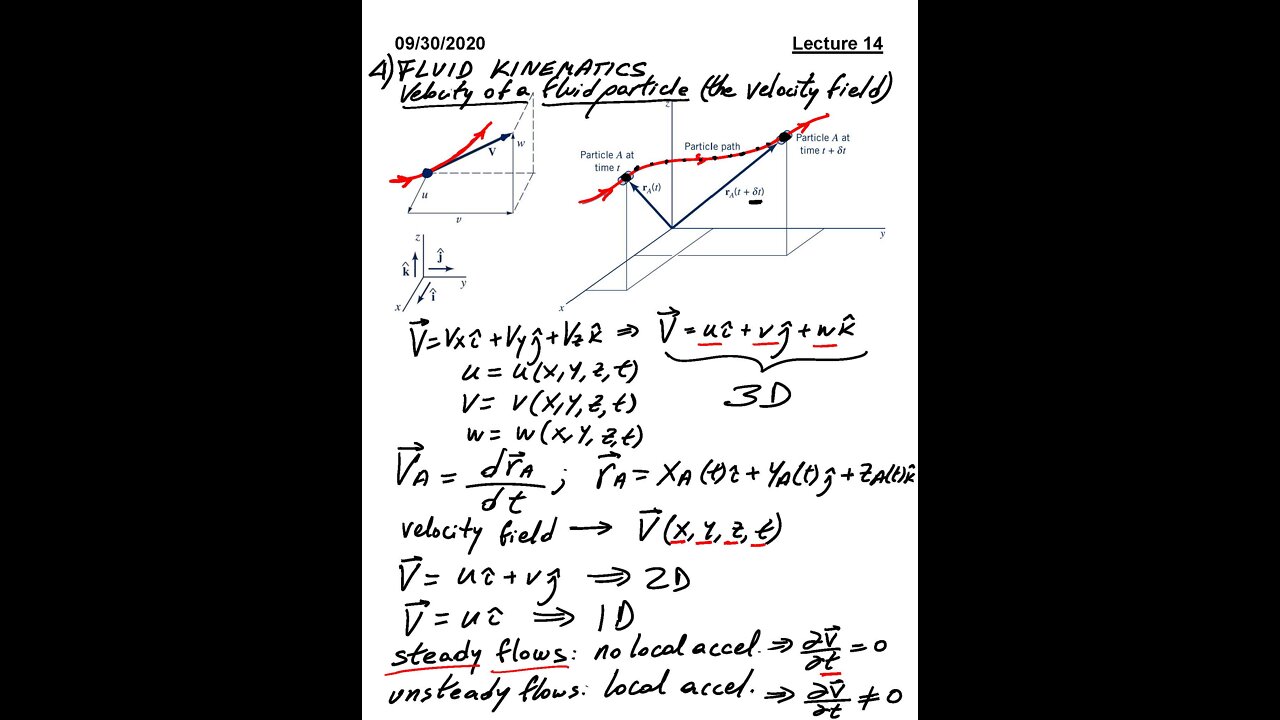 09/30/2020 Lecture 14
4) FLUID KINEMATICS
Velocity of a fluid particle (the velocity field)
z
w
V
u
v
Particle A at
time t
Particle path
Particle A at
time t + δt
r_A(t)
r_A(t + δt)
y
x
z
k̂
ĵ
y
x
î
V⃗ = Vx î + Vy ĵ + Vz k̂ ⇒ V⃗ = u î + v ĵ + w k̂
u = u(x, y, z, t)
3D
v = v(x, y, z, t)
w = w(x, y, z, t)
V⃗_A = dr⃗_A/dt ; r⃗_A = x_A(t) î + y_A(t) ĵ + z_A(t) k̂
velocity field → V⃗(x, y, z, t)
V⃗ = u î + v ĵ ⇒ 2D
V⃗ = u î ⇒ 1D
steady flows: no local accel. ⇒ ∂V⃗/∂t = 0
unsteady flows: local accel. ⇒ ∂V⃗/∂t ≠ 0